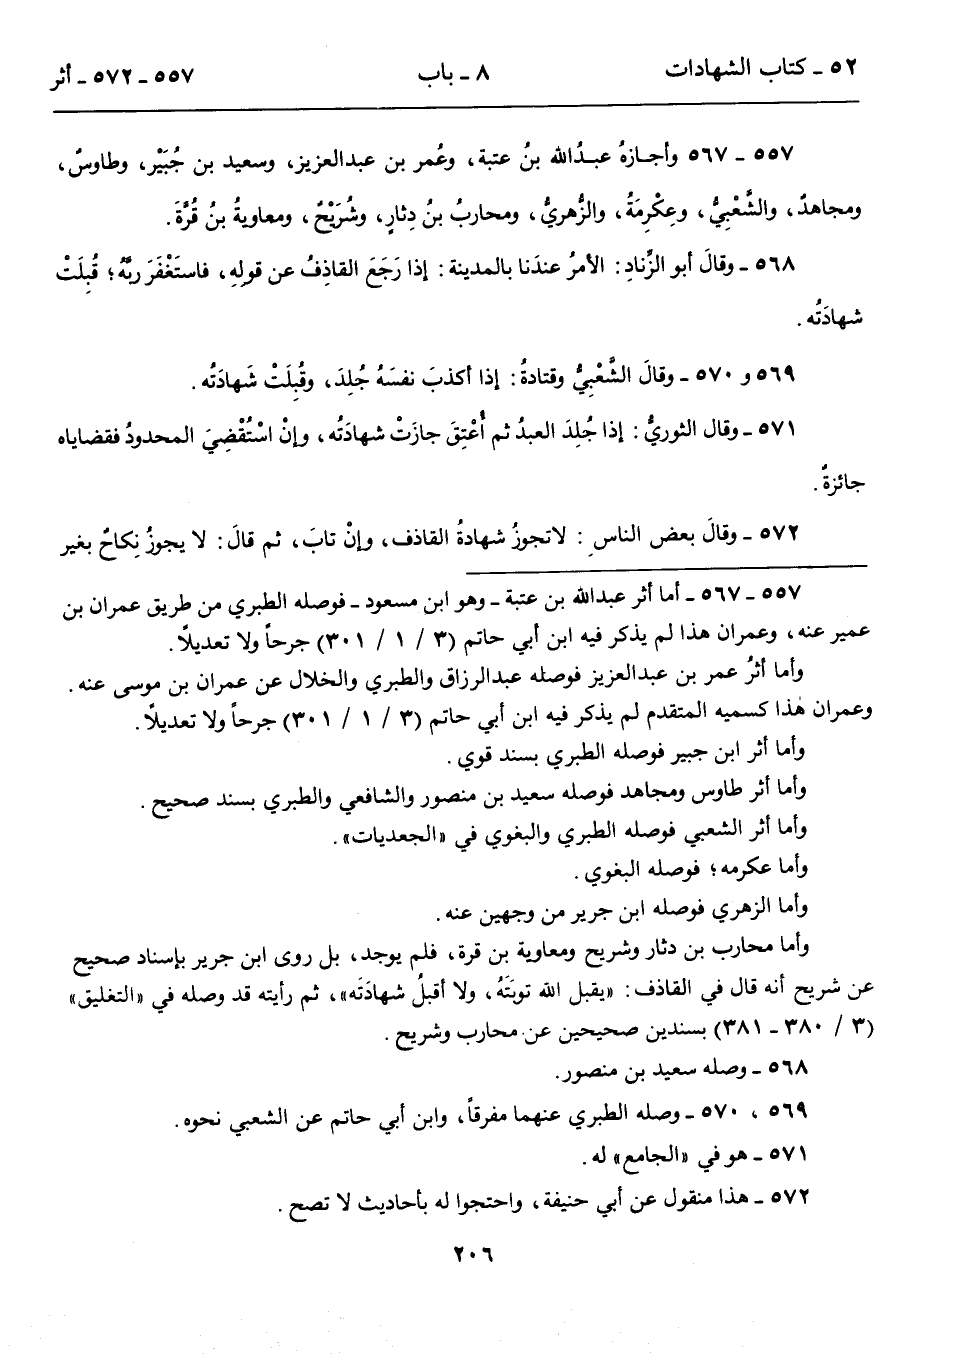 ٥٢ ـ كتاب الشهادات ٨ ـ باب ٥٥٧ ـ ٥٧٢ ـ أثر
٥٥٧ ـ ٥٦٧ وأجـازهُ عبـدُالله بنُ عتبة، وعُمر بن عبدالعزيز، وسعيد بن جُبَيْر، وطاوسٌ،
ومجاهدٌ، والشَّعْبِيُّ، وعِكْرِمَةُ، والزُّهريُّ، ومحاربُ بنُ دِثارٍ، وشُرَيْحٌ، ومعاويةُ بنُ قُرَّةَ.
٥٦٨ ـ وقالَ أبو الزِّنادِ: الأمرُ عندَنا بالمدينة: إذا رَجَعَ القاذفُ عن قولِهِ، فاستَغْفَرَ ربَّهُ؛ قُبِلَتْ
شهادَتُه.
٥٦٩ و ٥٧٠ ـ وقالَ الشَّعْبِيُّ وقتادةُ: إذا أكذبَ نفسَهُ جُلِدَ، وقُبِلَتْ شَهادَتُه.
٥٧١ ـ وقال الثوريُّ: إذا جُلِدَ العبدُ ثم أُعْتِقَ جازَتْ شهادَتُه، وإنْ اسْتُقْضِيَ المحدودُ فقضاياه
جائزةٌ.
٥٧٢ ـ وقالَ بعض الناسِ: لاتجوزُ شهادةُ القاذف، وإنْ تابَ، ثم قالَ: لا يجوزُ نِكاحٌ بغير
٥٥٧ ـ ٥٦٧ ـ أما أثر عبدالله بن عتبة ـ وهو ابن مسعود ـ فوصله الطبري من طريق عمران بن
عمير عنه، وعمران هذا لم يذكر فيه ابن أبي حاتم (٣ / ١ / ٣٠١) جرحاً ولا تعديلًا.
وأما أثرُ عمر بن عبدالعزيز فوصله عبدالرزاق والطبري والخلال عن عمران بن موسى عنه.
وعمران هٰذا كسميه المتقدم لم يذكر فيه ابن أبي حاتم (٣ / ١ / ٣٠١) جرحاً ولا تعديلًا.
وأما أثر ابن جبير فوصله الطبري بسند قوي.
وأما أثر طاوس ومجاهد فوصله سعيد بن منصور والشافعي والطبري بسند صحيح.
وأما أثر الشعبي فوصله الطبري والبغوي في «الجعديات».
وأما عكرمه؛ فوصله البغوي.
وأما الزهري فوصله ابن جرير من وجهين عنه.
وأما محارب بن دثار وشريح ومعاوية بن قرة، فلم يوجد، بل روى ابن جرير بإسناد صحيح
عن شريح أنه قال في القاذف: «يقبل الله توبتَهُ، ولا أقبلُ شهادَتَه»، ثم رأيته قد وصله في «التغليق»
(٣ / ٣٨٠ ـ ٣٨١) بسندين صحيحين عن محارب وشريح.
٥٦٨ ـ وصله سعيد بن منصور.
٥٦٩ ، ٥٧٠ ـ وصله الطبري عنهما مفرقاً، وابن أبي حاتم عن الشعبي نحوه.
٥٧١ ـ هو في «الجامع» له.
٥٧٢ ـ هذا منقول عن أبي حنيفة، واحتجوا له بأحاديث لا تصح.
٢٠٦